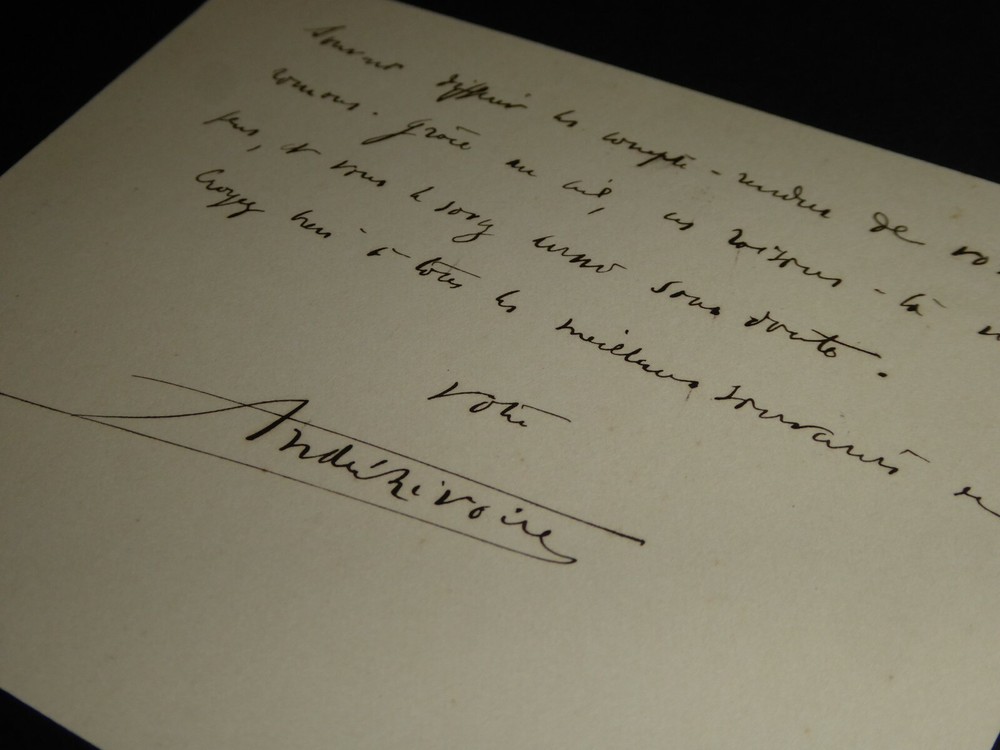 Souvent différer les compte-rendus de vo
romans. Grâce au ciel, ces raisons-là n
pas, et vous le savez aussi sans doute.
Croyez bien à tous les meilleurs souvenirs
Votre
André Rivoire